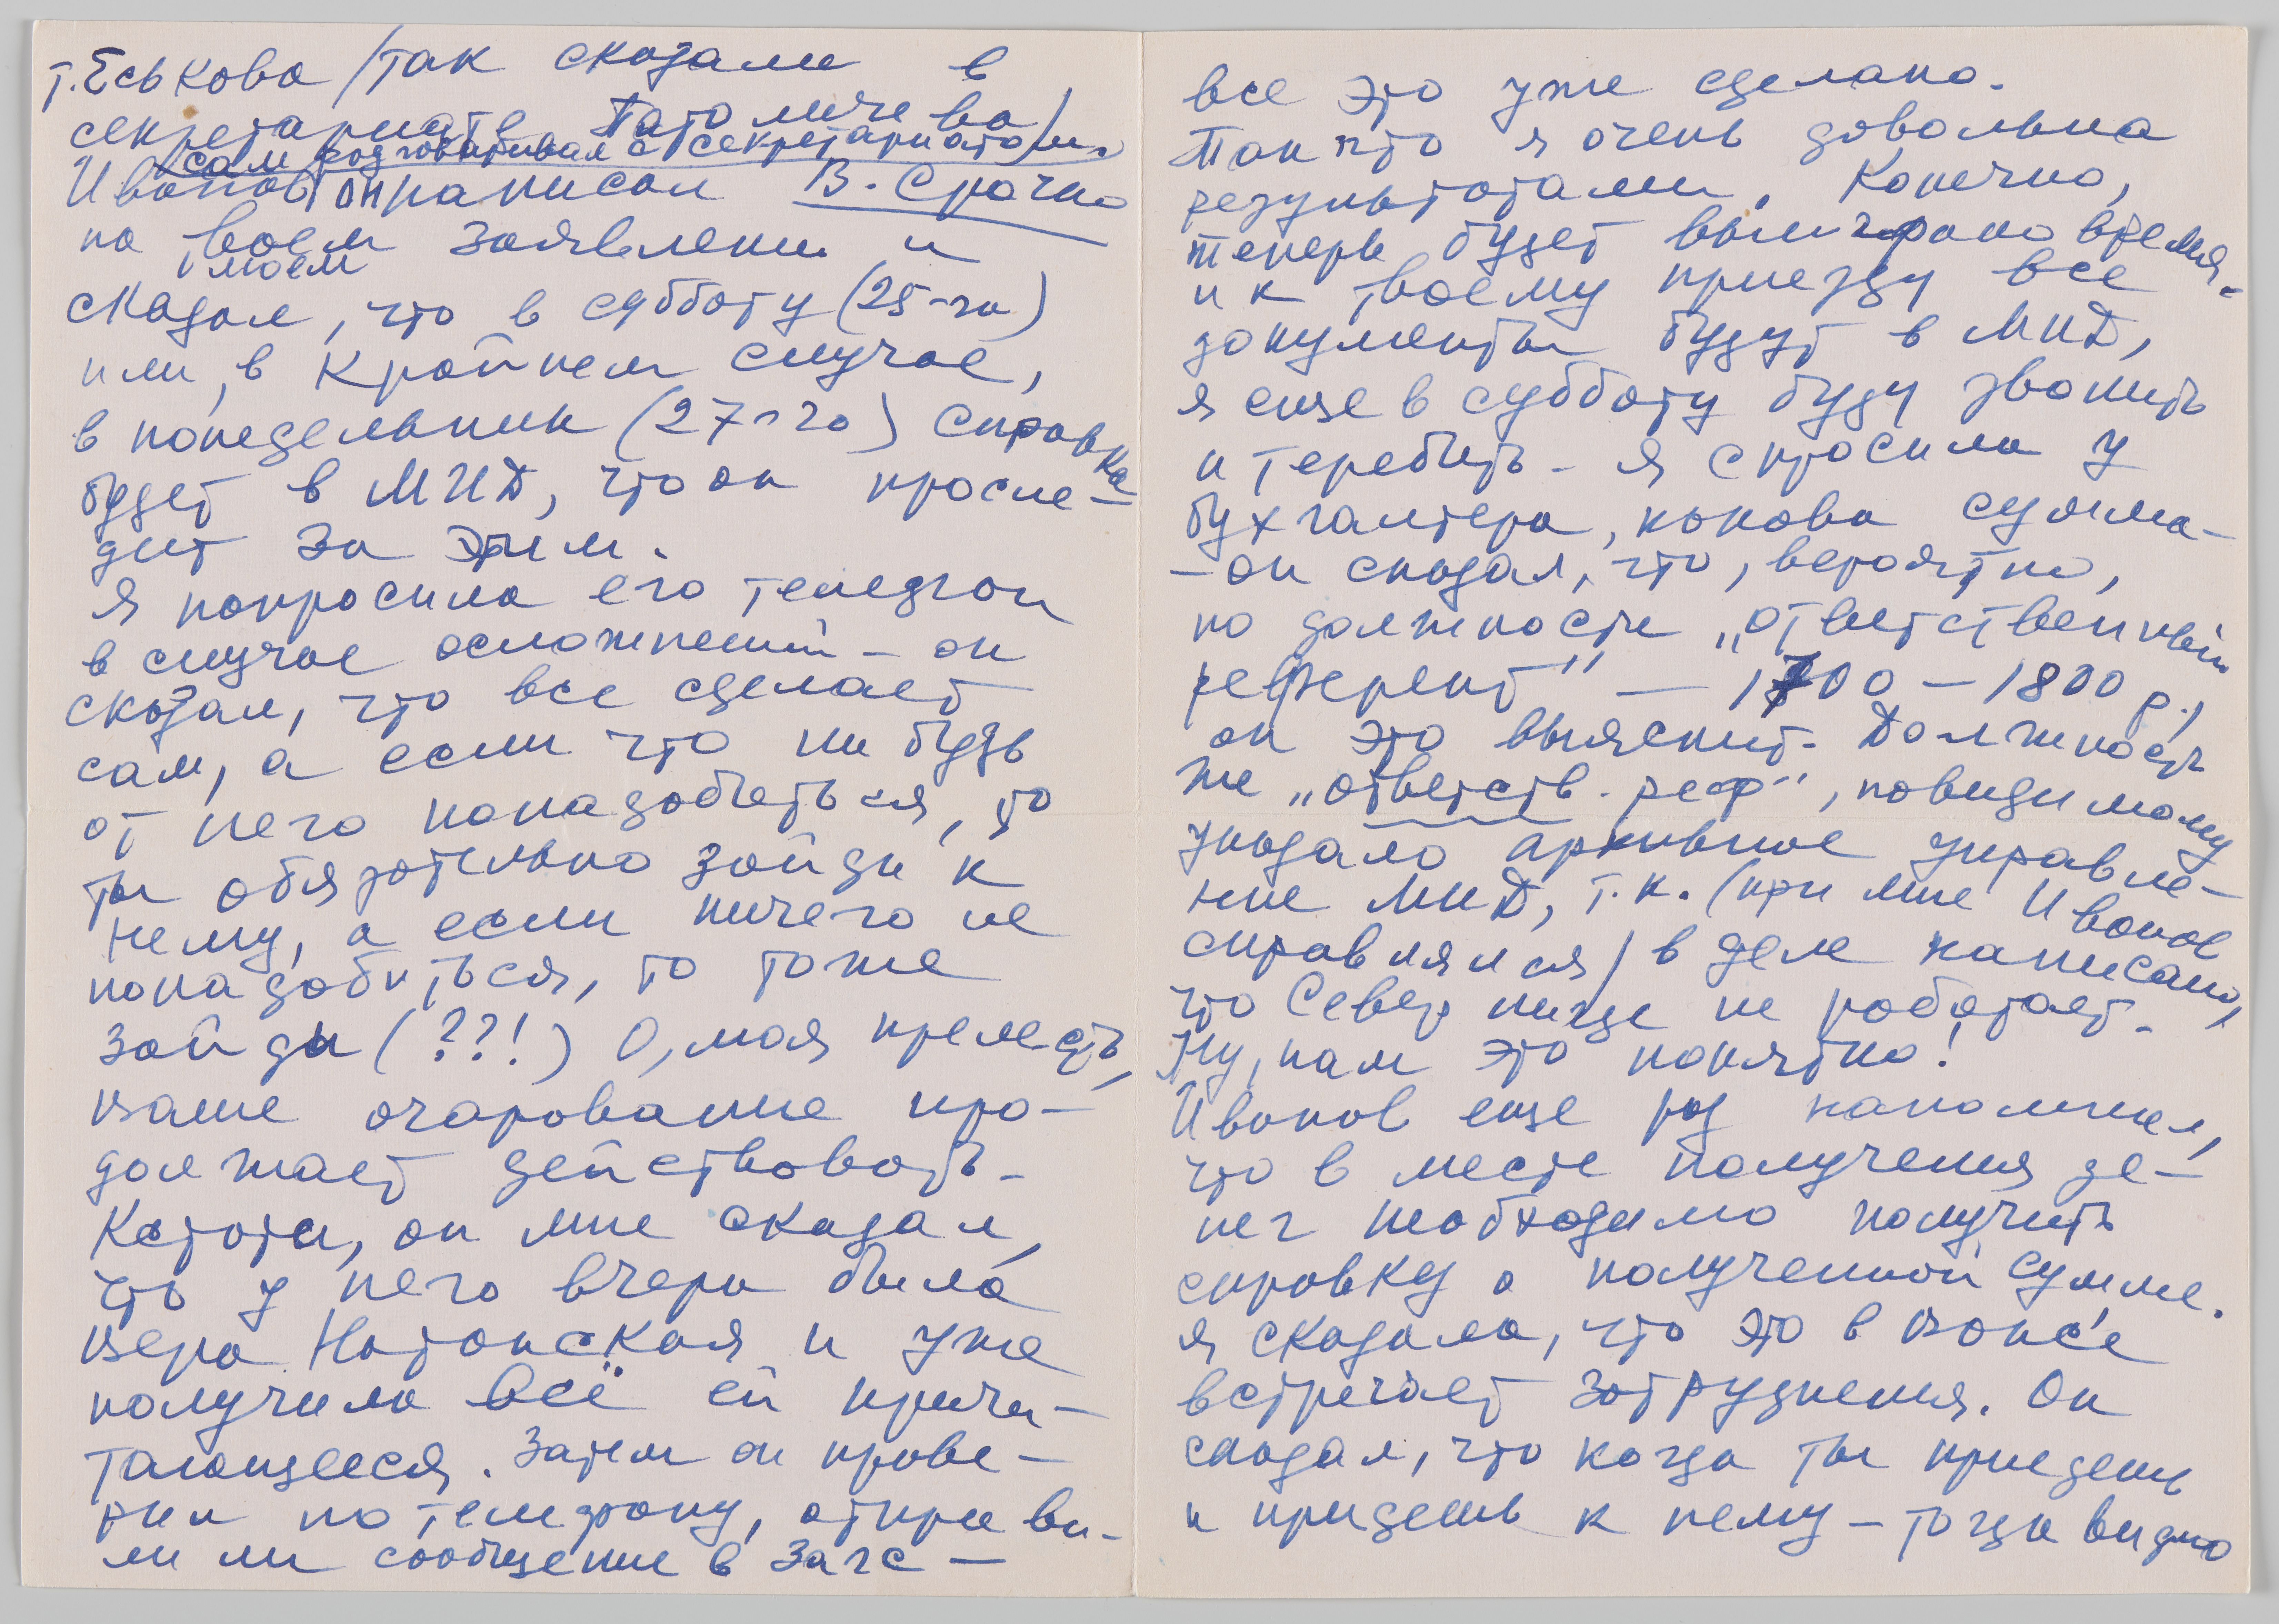 т. Еськова /так сказали в
секретариате Патоличева/
сам разговаривал с секретариатом.
Иванов написал В. Срочно
на твоем заявлении и
моем
сказал, что в субботу (25-го)
или, в крайнем случае,
в понедельник (27-го) справка
будет в МИД, что он просле-
дит за этим.
Я попросила его телефон
в случае осложнений – он
сказал, что все сделает
сам, а если что нибудь
от него понадобиться, то
ты обязательно зайди к
нему, а если ничего не
понадобиться, то тоже
зайди (??!) О, моя прелесть,
ваше очарование про-
должает действовать.
Кстати, он мне сказал,
что у него вчера была
вера Натанская и уже
получила всё ей причи-
тающееся. Затем он прове-
рил по телефону, отправи-
ли ли сообщение в Загс –
все это уже сделано.
Так что я очень довольна
результатами. Конечно,
теперь будет выиграно время.
и к твоему приезду все
документы будут в МИД,
я еще в субботу буду звонить
и теребить. Я спросила у
бухгалтера, какова сумма-
– он сказал, что, вероятно,
по должности „ответственный
референт" – 1700 – 1800 р.,
он это выяснит. Должность
же „ответств. реф", повидимому
указало архивное управле-
ние МИД, т.к. (при мне Иванов
справлялся) в деле написано,
что Север нигде не работает.
Ну, нам это понятно!
Иванов еще раз напомнил,
что в месте получения де-
нег необходимо получить
справку о полученной сумме.
Я сказала, что это в ВОКС'е
встречает затруднения. Он
сказал, что когда ты приедешь
и придешь к нему – тогда видно